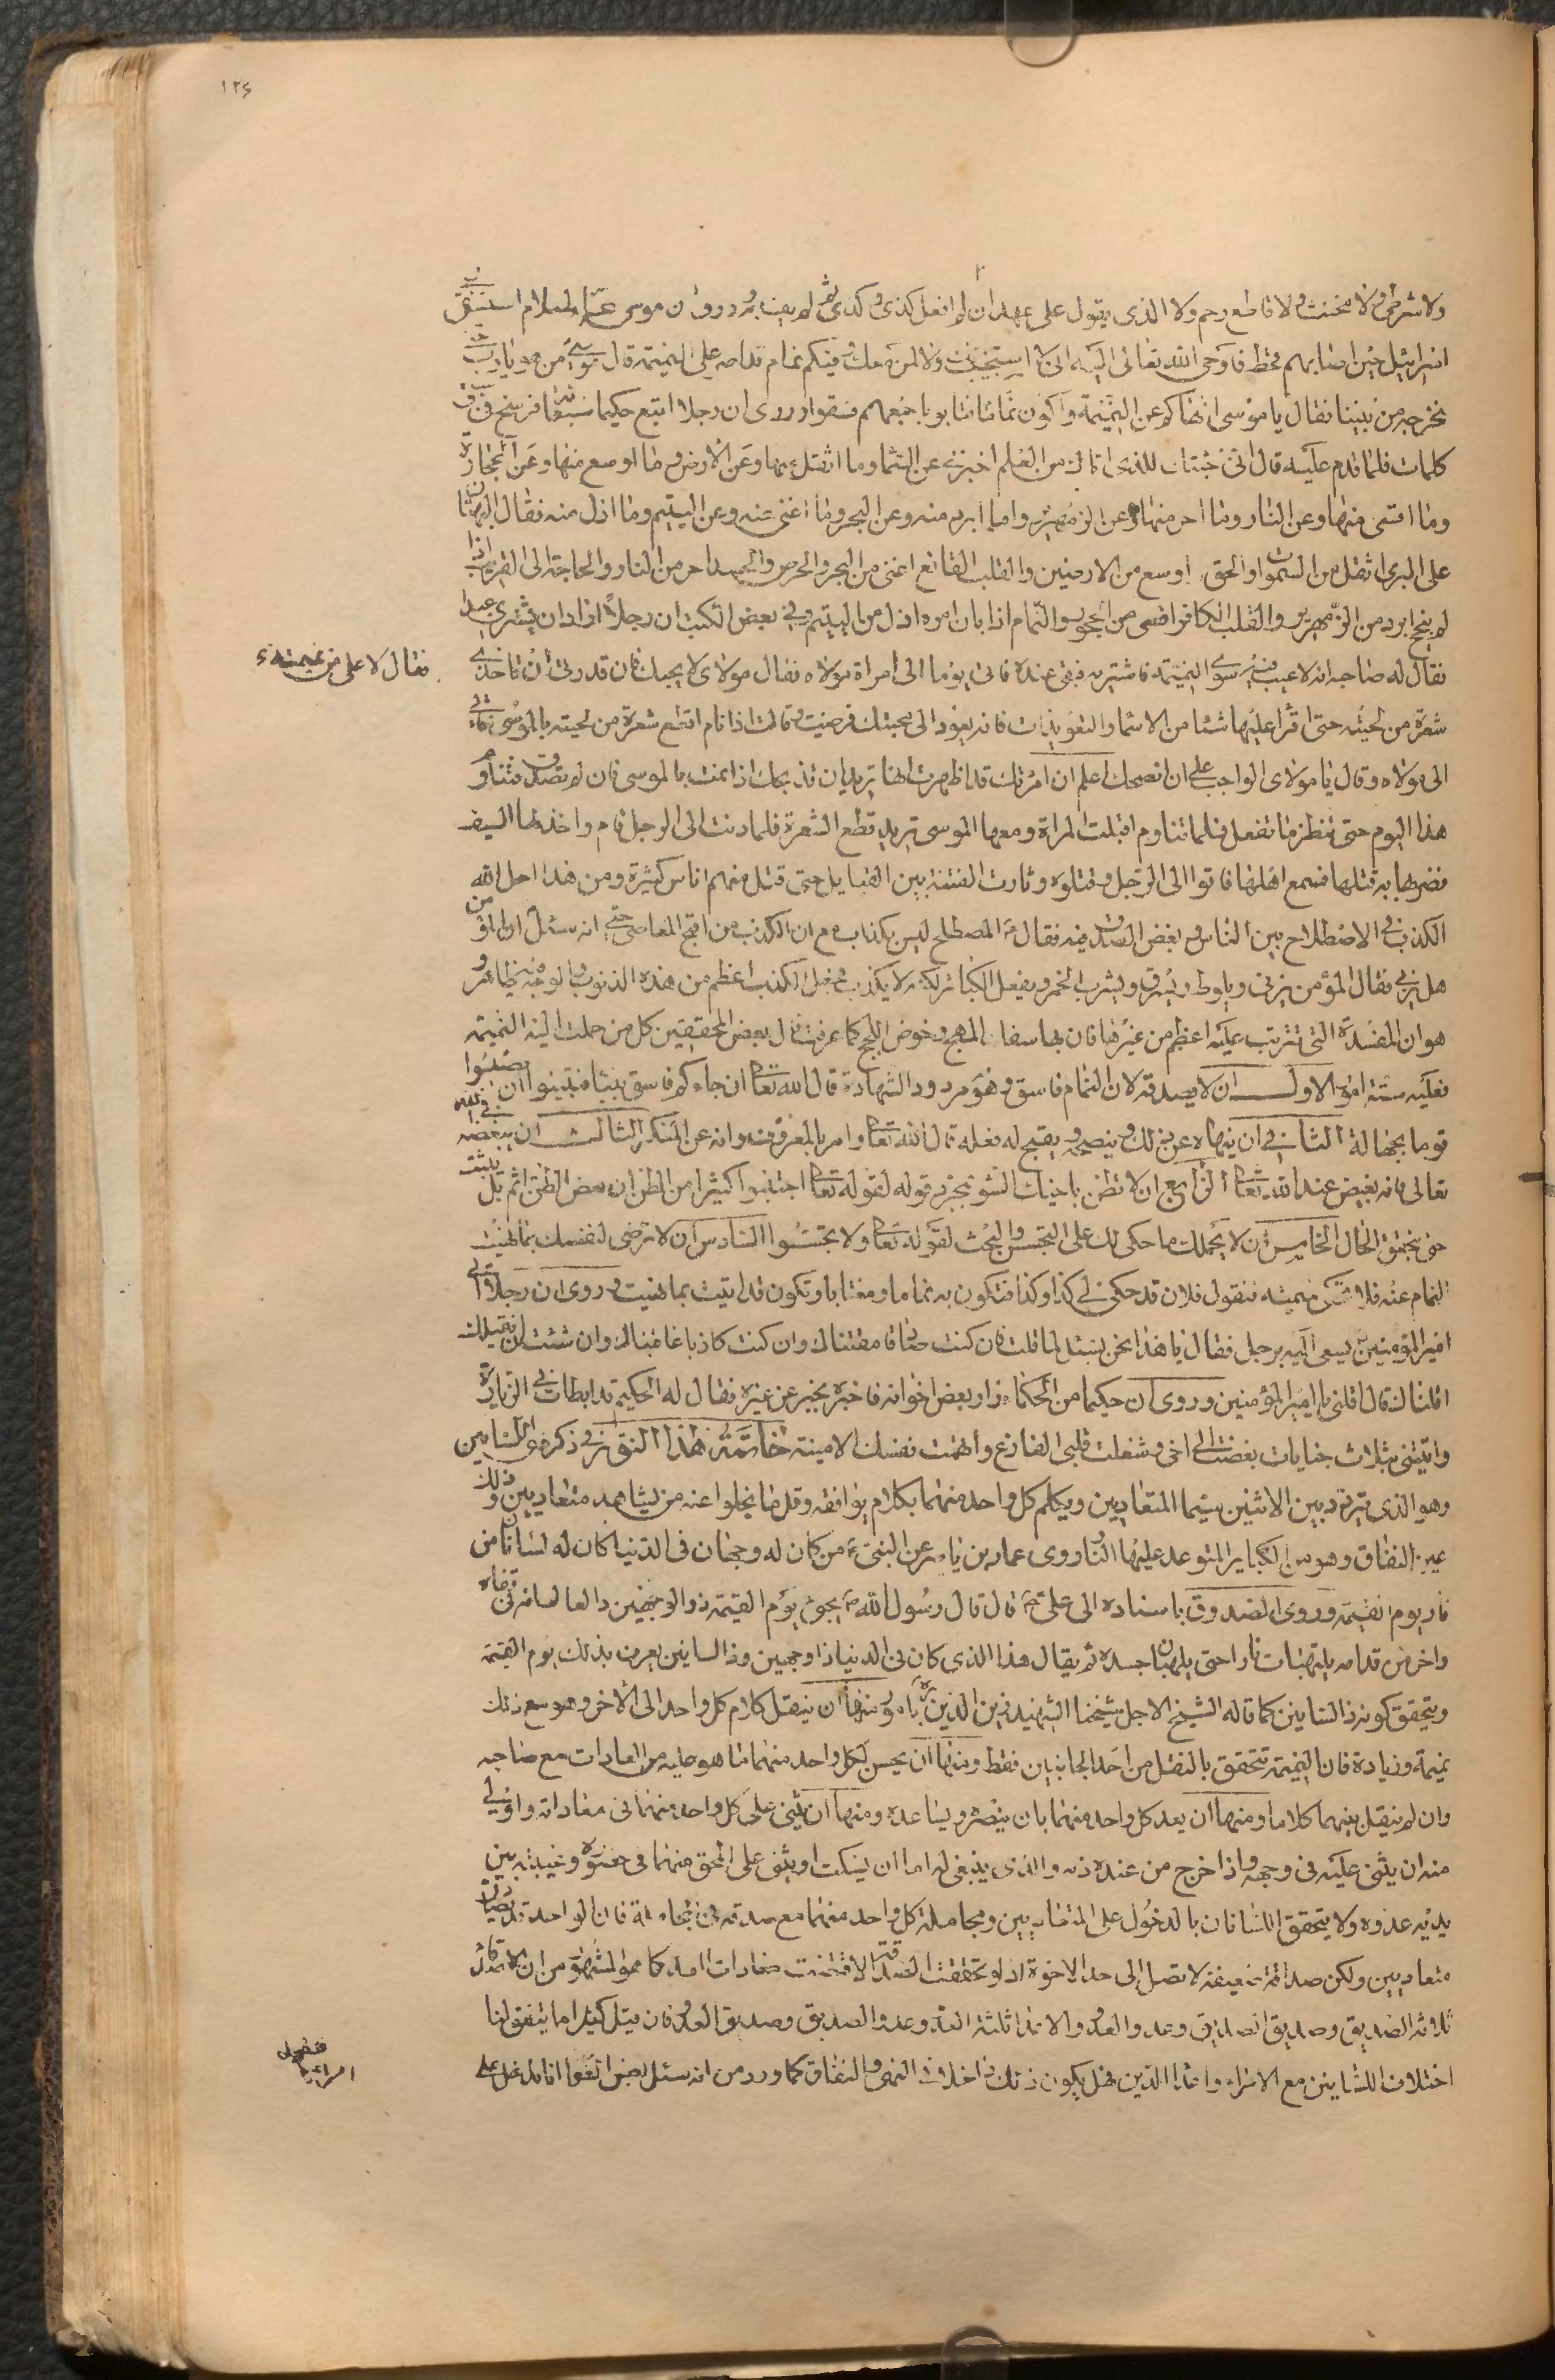 ١٢٤
ولا شرطى ولا مخنث ولا قاطع رحم ولا الذى يقول على عهد ان لم افعل كذى وكذى ثم لم يف به وروى ان موسى عليه السلام استسقى لبنى
اسرائيل حين اصابهم قحط فاوحى الله تعالى اليه انى لا استجيب لك ولا لمن معك وفيكم نمام قد اصر على النميمة قال موسى من هو يا رب حتى
نخرجه من بيننا فقال يا موسى انهاكم عن النميمة واكون نماما فتابوا باجمعهم فسقوا وروى ان رجلا اتبع حكيما سبعمائة فرسخ فى سبع
كلمات فلما قدم عليه قال انى جئتك للذى اتاك من العلم اخبرنى عن السماء وما اثقل منها وعن الارض وما اوسع منها وعن الحجارة
وما اقسى منها وعن النار وما احر منها وعن الزمهرير وما ابرد منه وعن البحر وما اغنى منه وعن اليتيم وما اذل منه فقال البهتان
على البرى اثقل من السموات والحق اوسع من الارضين والقلب القانع اغنى من البحر والحرص والحسد احر من النار والحاجة الى القريب اذا
لم ينجح ابرد من الزمهرير والقلب الكافر اقسى من الحجر والنمام اذا بان امره اذل من اليتيم وفى بعض الكتب ان رجلا اراد ان يشترى عبدا
فقال له صاحبه انه لا عيب فيه سوى النميمة فاشتريه فبقى عنده فاتى يوما الى امراة مولاه فقال مولاى لا يحبك فان قدرتى ان تاخذى
فقال لا على من نميمته
شعرة من لحيته حتى اقرا عليها شيئا من الاسماء والتعويذات فانه يعود الى محبتك فرضيت وقالت اذا نام اقطع شعرة من لحيته بالموسى فاتى
الى مولاه وقال يا مولاى الواجب على ان انصحك اعلم ان امرئتك قد اظهرت انها تريد ان تذبحك اذا نمت بالموسى فان لم تصدق فتناوم
هذا اليوم حتى تنظر ما تفعل فلما تناوم اقبلت المراة ومعها الموسى تريد قطع الشعرة فلما دنت الى الرجل قام واخذ لها السيف
فضربها به قتلها فسمع اهلها فاتوا الى الرجل وقتلوه وثارت الفتنة بين القبايل حتى قتل منهم اناس كثيرة ومن هذا احل الله
الكذب فى الاصطلاح بين الناس وبغض الصدق فيه فقال المصطلح ليس بكذاب مع ان الكذب من اقبح المعاصى حتى انه سئل ان المؤمن
هل يزنى فقال المؤمن يزنى ويلوط ويسرق ويشرب الخمر ويفعل الكبائر لكنه لا يكذب فجعل الكذب اعظم من هذه الذنوب والوجه فيه ظاهر و
هو ان المفسدة التى تترتب عليه اعظم من غيرها فان بها سفك المهج وخوض اللجج كما عرفت قال بعض المحققين كل من حملت اليه النميمة
فعليه ستة امور الاول ان لا يصدقه لان النمام فاسق وهو مردود الشهادة قال الله تعالى ان جاءكم فاسق بنبا فتبينوا ان تصيبوا
قوما بجهالة الثانى ان ينهاه عن ذلك وينصحه ويقبح له فعله قال الله تعالى وامر بالمعروف وانه عن المنكر الثالث ان يبغضه فى الله
تعالى فانه بغيض عند الله تعالى الرابع ان لا تظن باخيك السوء بمجرد قوله لقوله تعالى اجتنبوا كثيرا من الظن ان بعض الظن اثم بل يثبت
حتى يتحقق الحال الخامس ان لا يحملك ما حكى لك على التجسس والبحث لقوله تعالى ولا تجسسوا السادس ان لا ترضى لنفسك بما نهيت
النمام عنه فلا تحكى نميمته فتقول فلان قد حكى لى كذا وكذا فتكون به نماما ومغتابا وتكون قد اتيت بما نهيت وروى ان رجلا اتى
امير المؤمنين يسعى اليه برجل فقال يا هذا نحن نسئل لما قلت فان كنت صادقا مقتناك وان كنت كاذبا عاقبناك وان شئت ان نقيلك
اقلناك قال اقلنى يا امير المؤمنين وروى ان حكيما من الحكماء زار بعض اخوانه فاخبره بخبر عن غيره فقال له الحكيم قد ابطات فى الزيارة
واتيتنى بثلاث جنايات بغضت الى اخى وشغلت قلبى الفارغ واتهمت نفسك الامينة خاتمة هذا النور فى ذكر ذى اللسانين
وهو الذى يتردد بين الاثنين سيما المتعاديين ويكلم كل واحد منهما بكلام يوافقه وقلما يخلوا عنه من يشاهد متعاديين وذلك
عين النفاق وهو من الكباير المتوعد عليها النار وروى عمار بن ياسر عن النبى من كان له وجهان فى الدنيا كان له لسانان من
نار يوم القيمة وروى الصدوق باسناده الى على قال قال رسول الله يجئ يوم القيمة ذو الوجهين دالعا لسانه فى قفاه
واخر من قدامه يلتهبان نارا حتى يلهبان جسده ثم يقال هذا الذى كان فى الدنيا ذا وجهين وذا لسانين يعرف بذلك يوم القيمة
ويتحقق كونه ذا لسانين كما قاله الشيخ الاجل شيخنا الشهيد زين الدين بامور منها ان ينقل كلام كل واحد الى الاخر وهو مع ذلك
نميمة وزيادة فان النميمة تتحقق بالنقل من احد الجانبين فقط ومنها ان يحسن لكل واحد منهما ما هو عليه من المعادات مع صاحبه
وان لم ينقل بينهما كلاما ومنها ان يعد كل واحد منهما بان ينصره ويساعده ومنها ان يثنى على كل واحد منهما فى معاداته واولى
منه ان يثنى عليه فى وجهه واذا خرج من عنده ذمه والذى ينبغى له اما ان يسكت او يثنى على المحق منهما فى حضوره وغيبته بين
يديه عدوه ولا يتحقق اللسانان بالدخول على المتعاديين ومجاملة كل واحد منهما مع صدقه فى المجاملة فان الواحد قد يصادق
متعاديين ولكن صداقة ضعيفة لا تصل الى حد الاخوة اذ لو تحققت الصداقة لاقتضت معادات العدو كما هو المشهور من ان الاصدقاء
ثلاثة الصديق وصديق الصديق وعدو العدو والاعداء ثلثة العدو وعدو الصديق وصديق العدو فان قيل كثيرا ما يتفق لنا
اختلاف اللسانين مع الامراء واعداء الدين فهل يكون ذلك داخلا فى النهى والنفاق كما ورد من انه سئل بعض الصحابة انا ندخل على
امرائنا فنقول